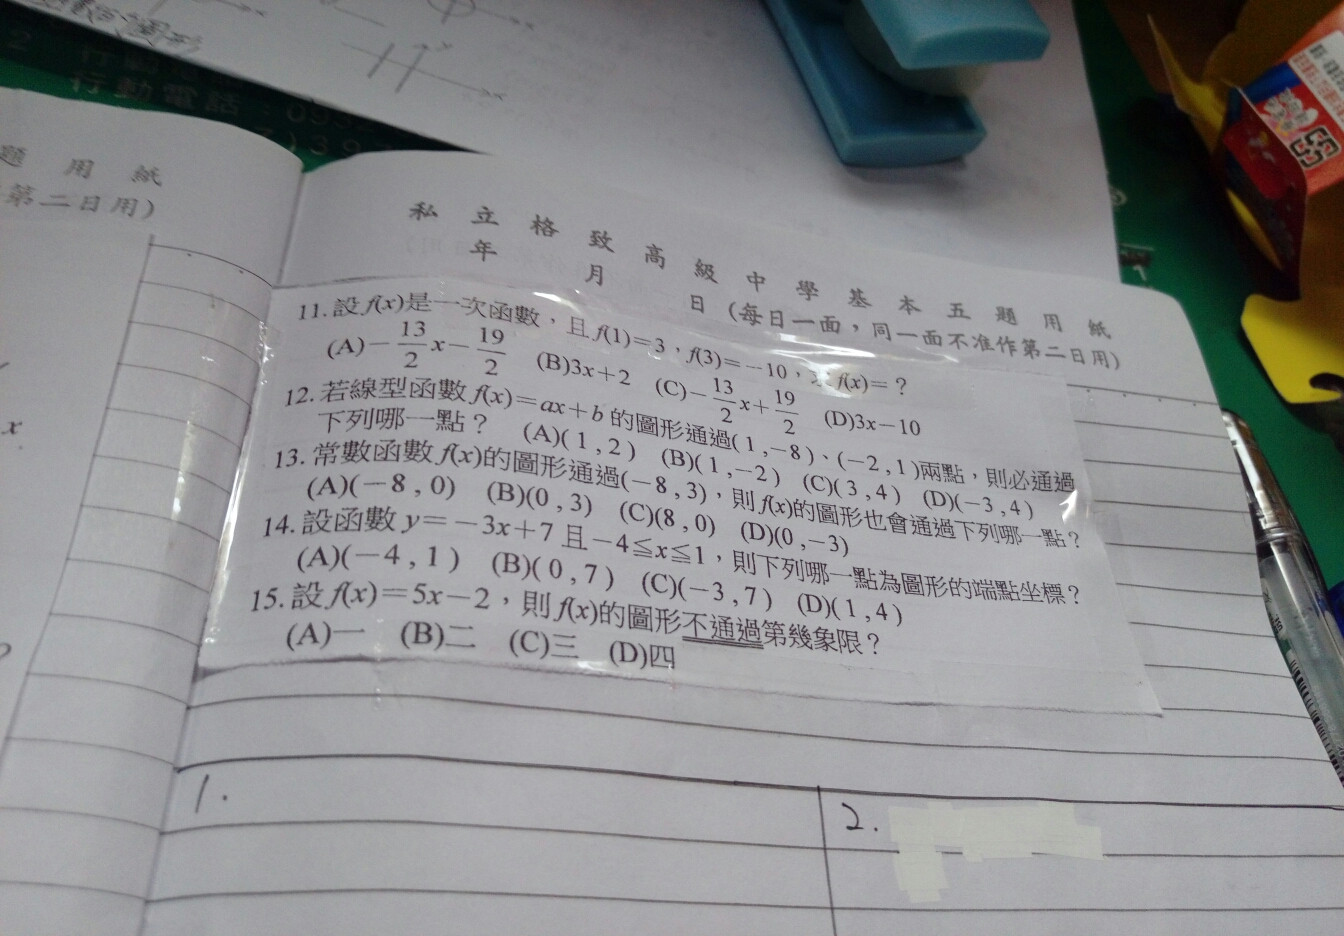 行動電話：09
題用紙
第二日用）
私立格致高級中學基本五題用紙
年 月 日（每日一面，同一面不准作第二日用）
11. 設 f(x)是一次函數，且 f(1)=3，f(3)=−10， f(x)=？
(A)−13/2 x−19/2 (B)3x+2 (C)−13/2 x+19/2 (D)3x−10
12. 若線型函數 f(x)=ax+b 的圖形通過(1,−8)、(−2,1)兩點，則必通過
下列哪一點？ (A)(1,2) (B)(1,−2) (C)(3,4) (D)(−3,4)
13. 常數函數 f(x)的圖形通過(−8,3)，則 f(x)的圖形也會通過下列哪一點？
(A)(−8,0) (B)(0,3) (C)(8,0) (D)(0,−3)
14. 設函數 y=−3x+7 且−4≦x≦1，則下列哪一點為圖形的端點坐標？
(A)(−4,1) (B)(0,7) (C)(−3,7) (D)(1,4)
15. 設 f(x)=5x−2，則 f(x)的圖形不通過第幾象限？
(A)一 (B)二 (C)三 (D)四
x
1.
2.